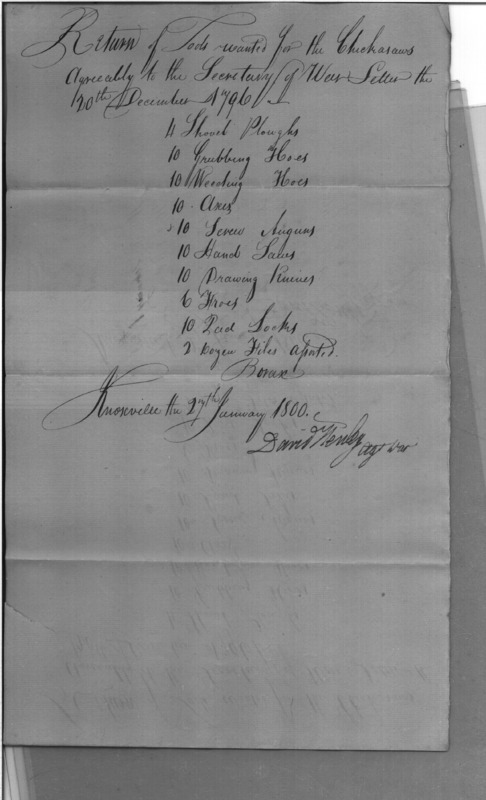 Return of Tools wanted for the Chickasaws
agreeably to the Secretary of War Letter the
20th December 1796
4 Shovel Ploughs
10 Grubbing Hoes
10 Weeding Hoes
10 Axes
10 Screw Augurs
10 Hand Saws
10 Drawing Knives
6 Froes
10 Pad Locks
2 Dozen Files assorted.
Borax
Knoxville the 27th January 1800.
David Henley
Agt War